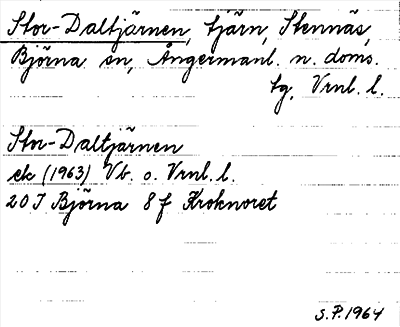 Stor-Daltjärnen, tjärn, Stennäs,
Björna sn, Ångermanl. n. doms.
tg, Vrnl. l.
Stor-Daltjärnen
ek (1963) Vb. o. Vrnl. l.
20 J Björna 8 f Kroknoret
S.P. 1964